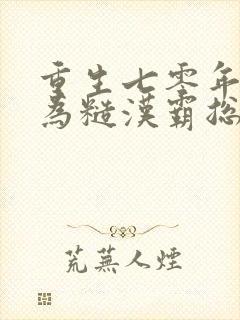 重生七零年
為糙漢霸總
荒蕪人煙